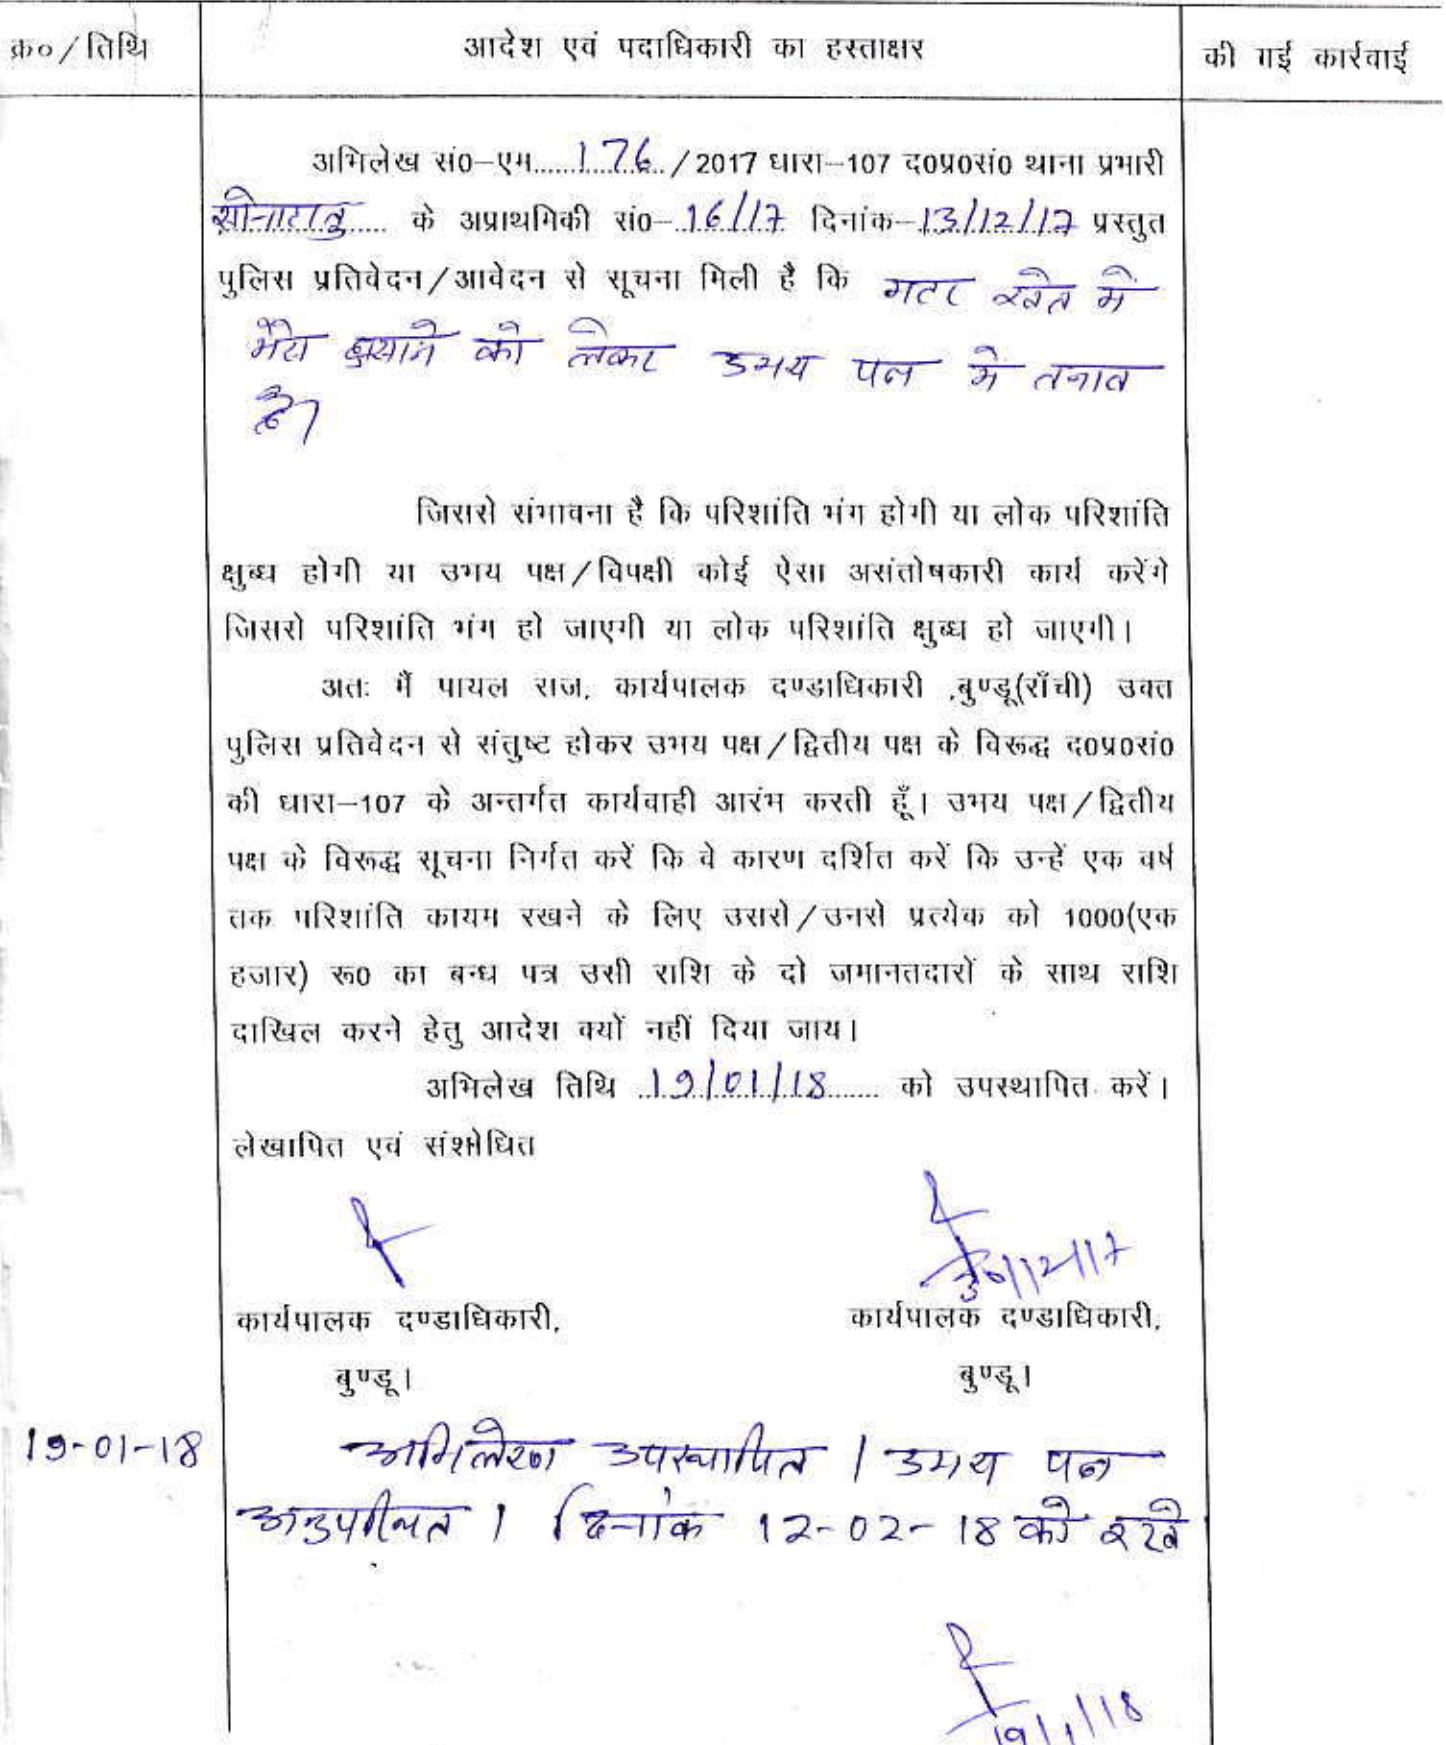 क्र०/तिथि
आदेश एवं पदाधिकारी का हस्ताक्षर
की गई कार्रवाई
अभिलेख सं0–एम.....176./2017 धारा–107 द0प्र0सं0 थाना प्रभारी
सोनाहातु..... के अप्राथमिकी सं0–16/17 दिनांक–13/12/17 प्रस्तुत
पुलिस प्रतिवेदन/आवेदन से सूचना मिली है कि मटर खेत में
को लेकर उभय पक्ष में तनाव
है।
जिससे संभावना है कि परिशांति भंग होगी या लोक परिशांति
क्षुब्ध होगी या उभय पक्ष/विपक्षी कोई ऐसा असंतोषकारी कार्य करेंगे
जिससे परिशांति भंग हो जाएगी या लोक परिशांति क्षुब्ध हो जाएगी।
अतः मैं पायल राज, कार्यपालक दण्डाधिकारी ,बुण्डू(राँची) उक्त
पुलिस प्रतिवेदन से संतुष्ट होकर उभय पक्ष/द्वितीय पक्ष के विरूद्ध द0प्र0सं0
की धारा–107 के अन्तर्गत कार्यवाही आरंभ करती हूँ। उभय पक्ष/द्वितीय
पक्ष के विरूद्ध सूचना निर्गत करें कि वे कारण दर्शित करें कि उन्हें एक वर्ष
तक परिशांति कायम रखने के लिए उससे/उनसे प्रत्येक को 1000(एक
हजार) रू0 का बन्ध पत्र उसी राशि के दो जमानतदारों के साथ राशि
दाखिल करने हेतु आदेश क्यों नहीं दिया जाय।
अभिलेख तिथि ...19/01/18...... को उपस्थापित करें।
लेखापित एवं संशोधित
30/12/17
कार्यपालक दण्डाधिकारी, कार्यपालक दण्डाधिकारी,
बुण्डू। बुण्डू।
19-01-18 अभिलेख उपस्थापित। उभय पक्ष
अनुपस्थित। दिनांक 12-02-18 को रखें
19/1/18